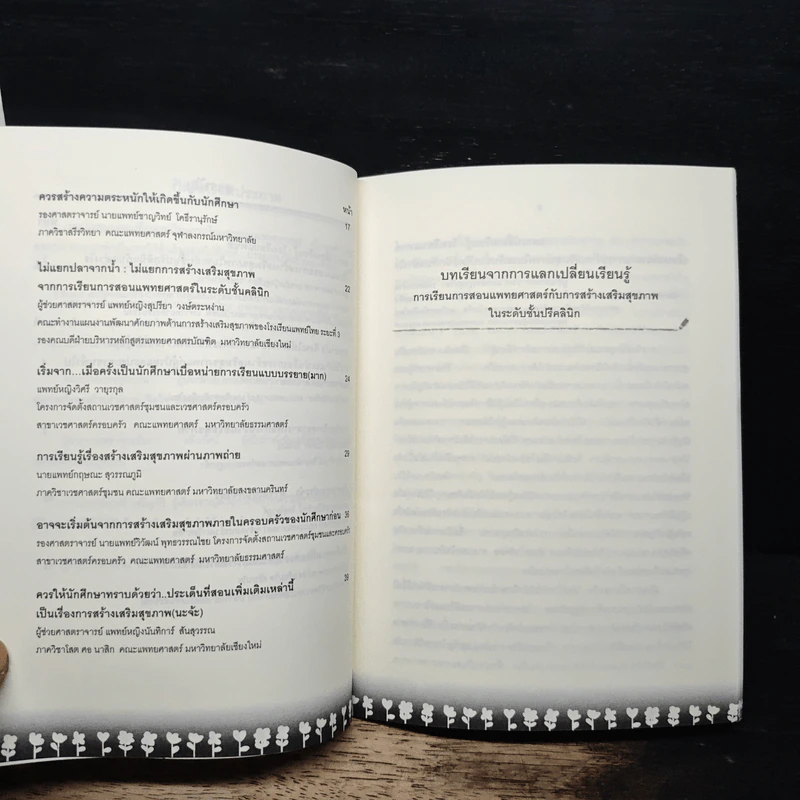 หน้า
ควรสร้างความตระหนักให้เกิดขึ้นกับนักศึกษา 17
รองศาสตราจารย์ นายแพทย์ชาญวิทย์ โคธีรานุรักษ์
ภาควิชาสรีรวิทยา คณะแพทยศาสตร์ จุฬาลงกรณ์มหาวิทยาลัย
ไม่แยกปลาจากน้ำ : ไม่แยกการสร้างเสริมสุขภาพ 22
จากการเรียนการสอนแพทยศาสตร์ในระดับชั้นคลินิก
ผู้ช่วยศาสตราจารย์ แพทย์หญิงสุปรียา วงษ์ตระหง่าน
คณะทำงานแผนงานพัฒนาศักยภาพด้านการสร้างเสริมสุขภาพของโรงเรียนแพทย์ไทย ระยะที่ 3
รองคณบดีฝ่ายบริหารหลักสูตรแพทยศาสตรบัณฑิต มหาวิทยาลัยเชียงใหม่
เริ่มจาก...เมื่อครั้งเป็นนักศึกษาเบื่อหน่ายการเรียนแบบบรรยาย(มาก) 24
แพทย์หญิงวิศรี วายุรกุล
โครงการจัดตั้งสถานเวชศาสตร์ชุมชนและเวชศาสตร์ครอบครัว
สาขาเวชศาสตร์ครอบครัว คณะแพทยศาสตร์ มหาวิทยาลัยธรรมศาสตร์
การเรียนรู้เรื่องสร้างเสริมสุขภาพผ่านภาพถ่าย 29
นายแพทย์กฤษณะ สุวรรณภูมิ
ภาควิชาเวชศาสตร์ชุมชน คณะแพทยศาสตร์ มหาวิทยาลัยสงขลานครินทร์
อาจจะเริ่มต้นจากการสร้างเสริมสุขภาพภายในครอบครัวของนักศึกษาก่อน 36
รองศาสตราจารย์ นายแพทย์วิวัฒน์ พุทธวรรณไชย โครงการจัดตั้งสถานเวชศาสตร์ชุมชนและครอบครัว
สาขาเวชศาสตร์ครอบครัว คณะแพทยศาสตร์ มหาวิทยาลัยธรรมศาสตร์
ควรให้นักศึกษาทราบด้วยว่า..ประเด็นที่สอนเพิ่มเติมเหล่านี้ 39
เป็นเรื่องการสร้างเสริมสุขภาพ(นะจ๊ะ)
ผู้ช่วยศาสตราจารย์ แพทย์หญิงนันทิการ์ สันสุวรรณ
ภาควิชาโสต ศอ นาสิก คณะแพทยศาสตร์ มหาวิทยาลัยเชียงใหม่
บทเรียนจากการแลกเปลี่ยนเรียนรู้
การเรียนการสอนแพทยศาสตร์กับการสร้างเสริมสุขภาพ
ในระดับชั้นปรีคลินิก